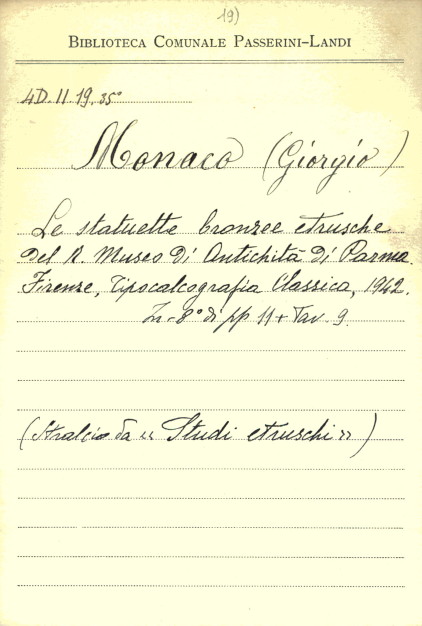 19)
BIBLIOTECA COMUNALE PASSERINI-LANDI
4D.II.19.35°
Monaco (Giorgio)
Le statuette bronzee etrusche
del R. Museo di Antichità di Parma.
Firenze, Tipocalcografia Classica, 1942.
In-8° di pp 11 + Tav. 9.
(Stralcio da « Studi etruschi »)